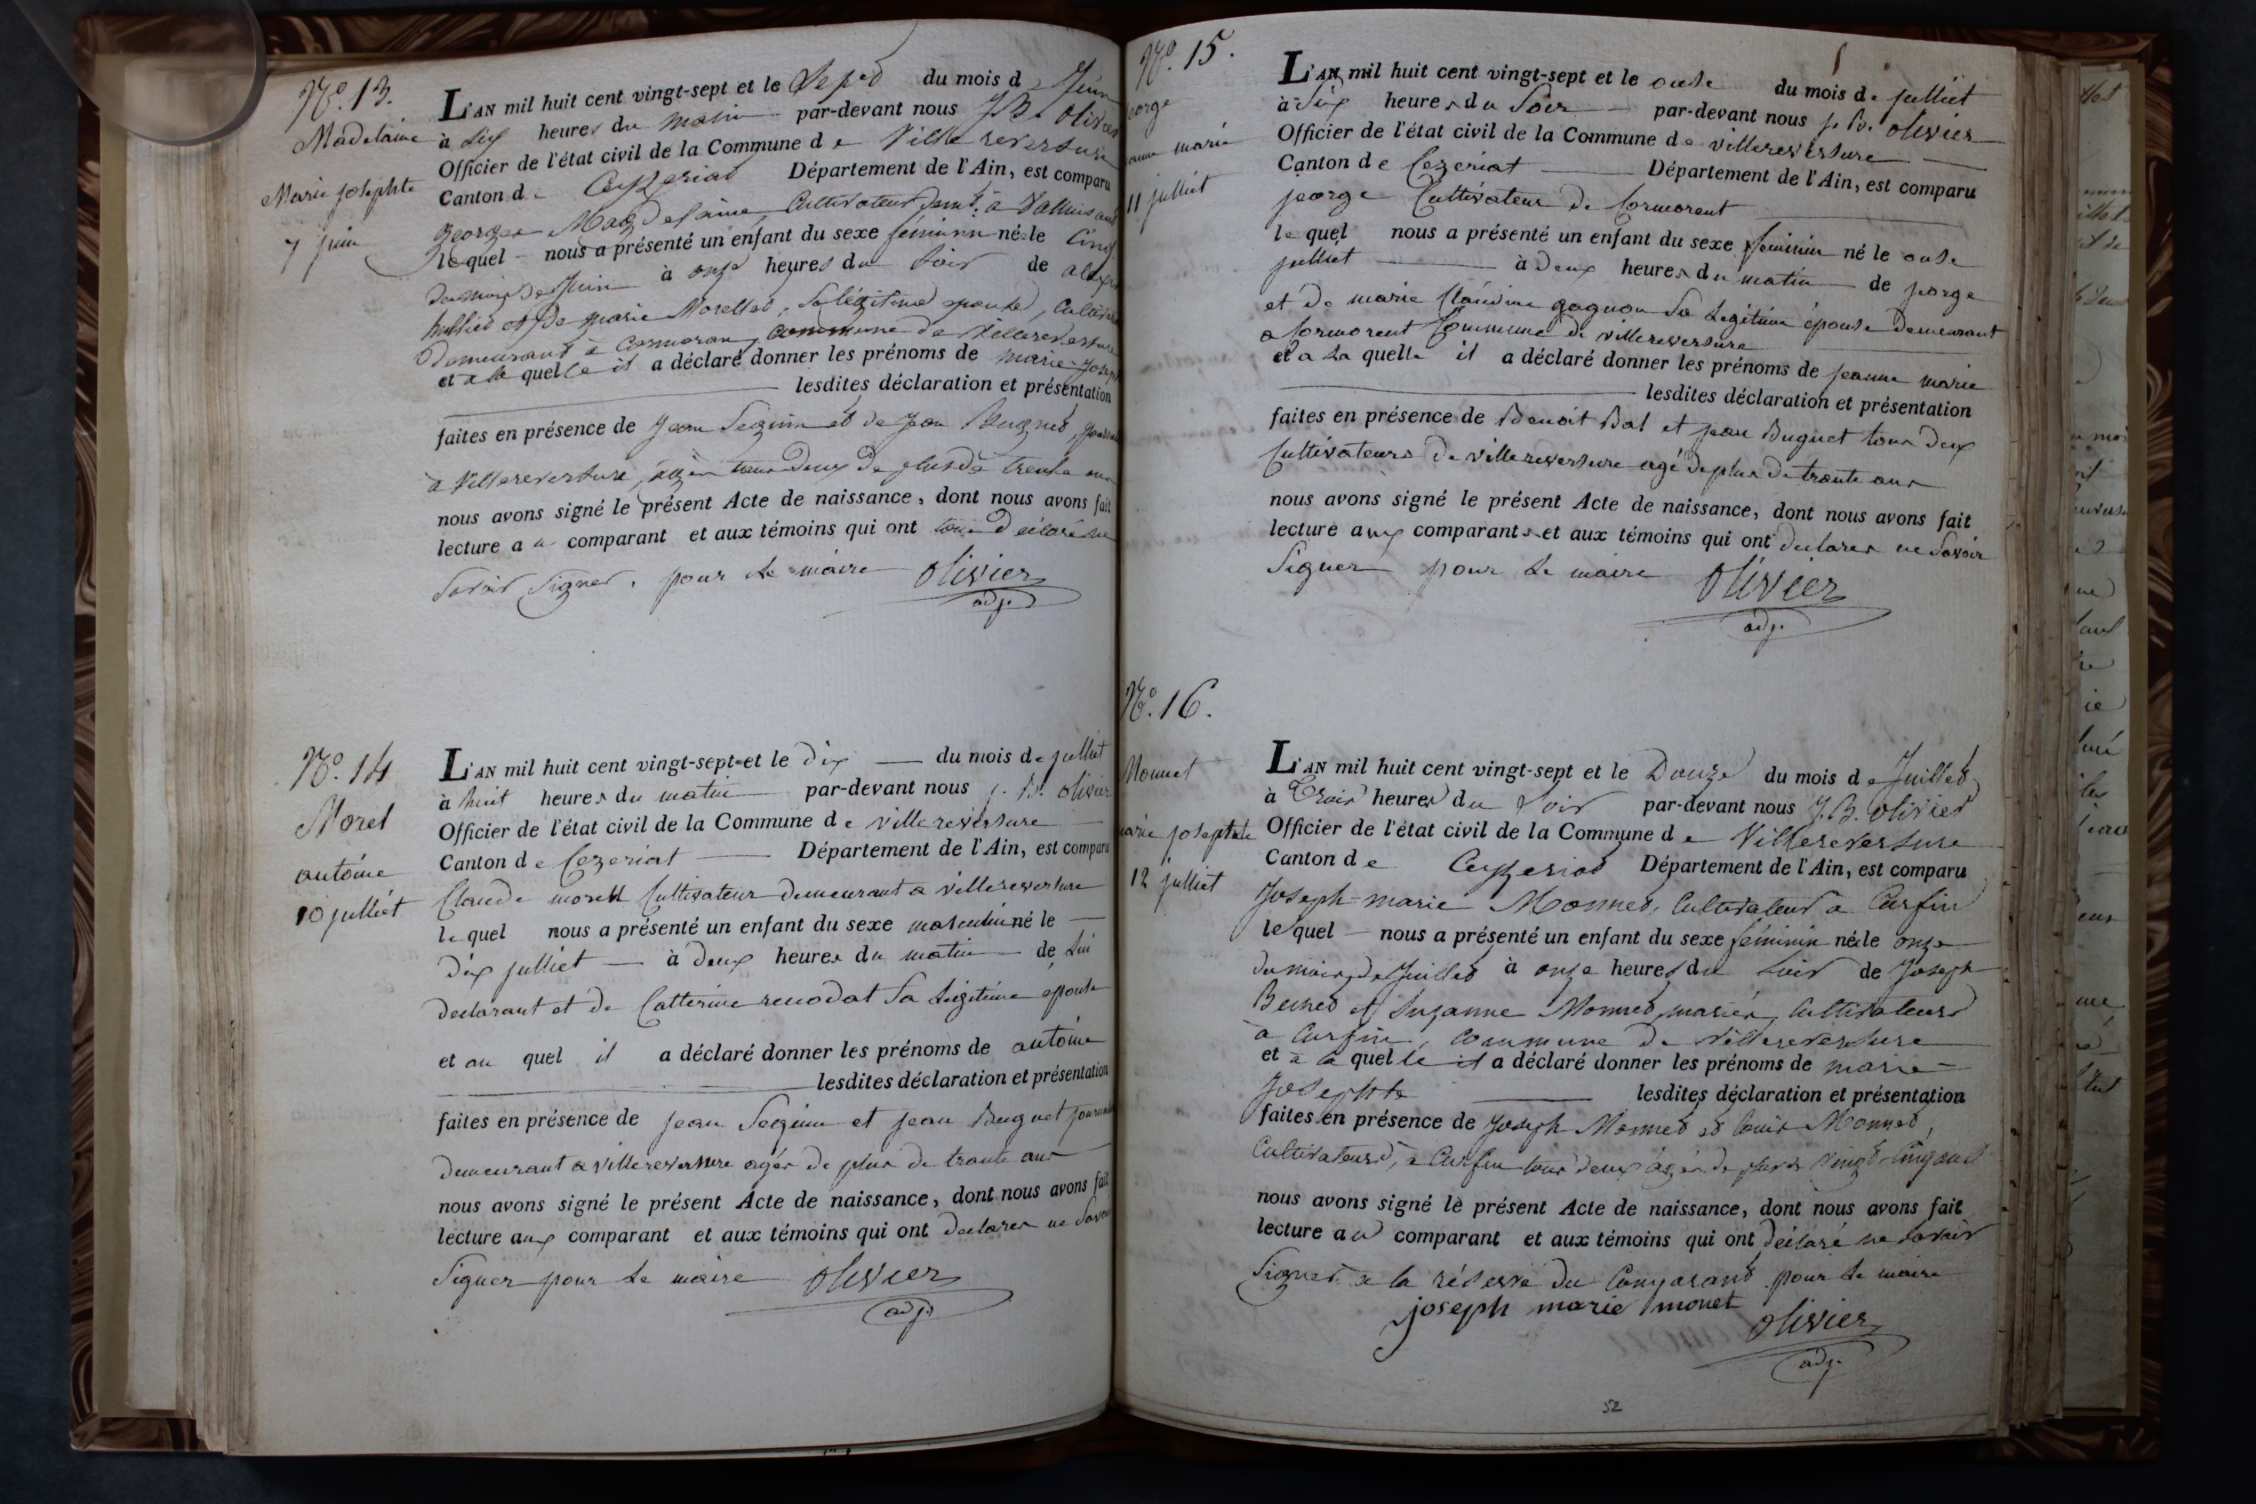 N.º 13.
Madelaine
Marie josephte
7 juin
L'AN mil huit cent vingt-sept et le Sept du mois de Juin
à six heures du matin par-devant nous J. B. Olivier
Officier de l'état civil de la Commune de Villereversure
Canton de Ceyzeriat Département de l'Ain, est comparu
Georges Magdelaine, Cultivateur demt. à
lequel nous a présenté un enfant du sexe féminin née le cinq
du mois de Juin à onze heures du soir de
et de marie Morellet, sa légitime épouse,
demeurant à Cormoran, commune de Villereversure
et a la quelle il a déclaré donner les prénoms de marie-
lesdites déclaration et présentation
faites en présence de Jean Seguin et de Jean Buguet,
à Villereversure, agés tous deux de plus de trente ans
nous avons signé le présent Acte de naissance, dont nous avons fait
lecture au comparant et aux témoins qui ont tous déclaré ne
savoir signer. pour le maire Olivier
adj.
N.º 14
Morel
antoine
10 julliet
L'AN mil huit cent vingt-sept et le dix du mois de julliet
à huit heures du matin par-devant nous j. B. olivier
Officier de l'état civil de la Commune de villereversure
Canton de Cezeriat Département de l'Ain, est comparu
Claude morell Cultivateur demeurant a villereversure
le quel nous a présenté un enfant du sexe masculin né le
dix julliet à deux heures du matin de lui
declarant et de Catterine renodat sa legitime épouse
et au quel il a déclaré donner les prénoms de antoine
lesdites déclaration et présentation
faites en présence de jean Seguin et jean Buguet
demeurant a villereversure agés de plus de trante ans
nous avons signé le présent Acte de naissance, dont nous avons fait
lecture aux comparant et aux témoins qui ont declarer ne savoir
signer pour le maire Olivier
adj.
N.º 15.
jeorge
jeanne marie
11 julliet
L'AN mil huit cent vingt-sept et le onse du mois de julliet
à Six heures du Soir par-devant nous j. B. olivier
Officier de l'état civil de la Commune de villereversure
Canton de Cezeriat Département de l'Ain, est comparu
jeorge Cultivateur de Cormorent
le quel nous a présenté un enfant du sexe feminin né le onse
julliet à deux heures du matin de jeorge
et de marie Claudine gagnon sa legitime épouse demeurant
a Cormorent Commune de villereversure
et a la quelle il a déclaré donner les prénoms de jeanne marie
lesdites déclaration et présentation
faites en présence de Benoit Bal et jean Buguet tous deux
Cultivateurs de villereversure agé de plus de trante ans
nous avons signé le présent Acte de naissance, dont nous avons fait
lecture aux comparants et aux témoins qui ont declarer ne savoir
signer pour le maire Olivier
adj.
N.º 16.
Monnet
marie josephte
12 julliet
L'AN mil huit cent vingt-sept et le Douze du mois de Juillet
à Trois heures du Soir par-devant nous J. B. Olivier
Officier de l'état civil de la Commune de Villereversure
Canton de Ceyzeriat Département de l'Ain, est comparu
Joseph-marie Monnet, Cultivateur a Curfin
lequel nous a présenté un enfant du sexe féminin née le onze
du mois de Juillet à onze heures du soir de Joseph
et Suzanne Monnet, mariés, Cultivateurs
à Curfin, Commune de Villereversure
et à la quelle il a déclaré donner les prénoms de marie-
Josephte lesdites déclaration et présentation
faites en présence de Joseph Monnet et Louis Monnet,
Cultivateurs, à Curfin tous deux âgés de plus de vingt-cinq ans
nous avons signé le présent Acte de naissance, dont nous avons fait
lecture au comparant et aux témoins qui ont déclaré ne savoir
signer à la réserve du Comparant. pour le maire
joseph marie monet
Olivier
adj.
52